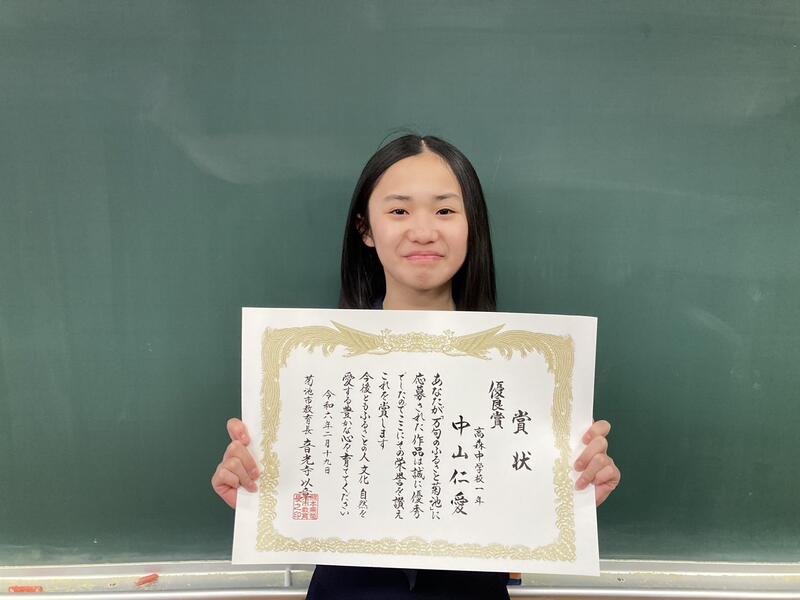 賞状
優良賞
高森中学校一年
中山仁愛
あなたが「万句のふるさと菊池」に
応募された作品は誠に優秀
でしたのでここにその栄誉を讃え
これを賞します
今後ともふるさとの人 文化 自然を
愛する豊かな心を育ててください
令和六年二月十九日
菊池市教育長 音光寺以章